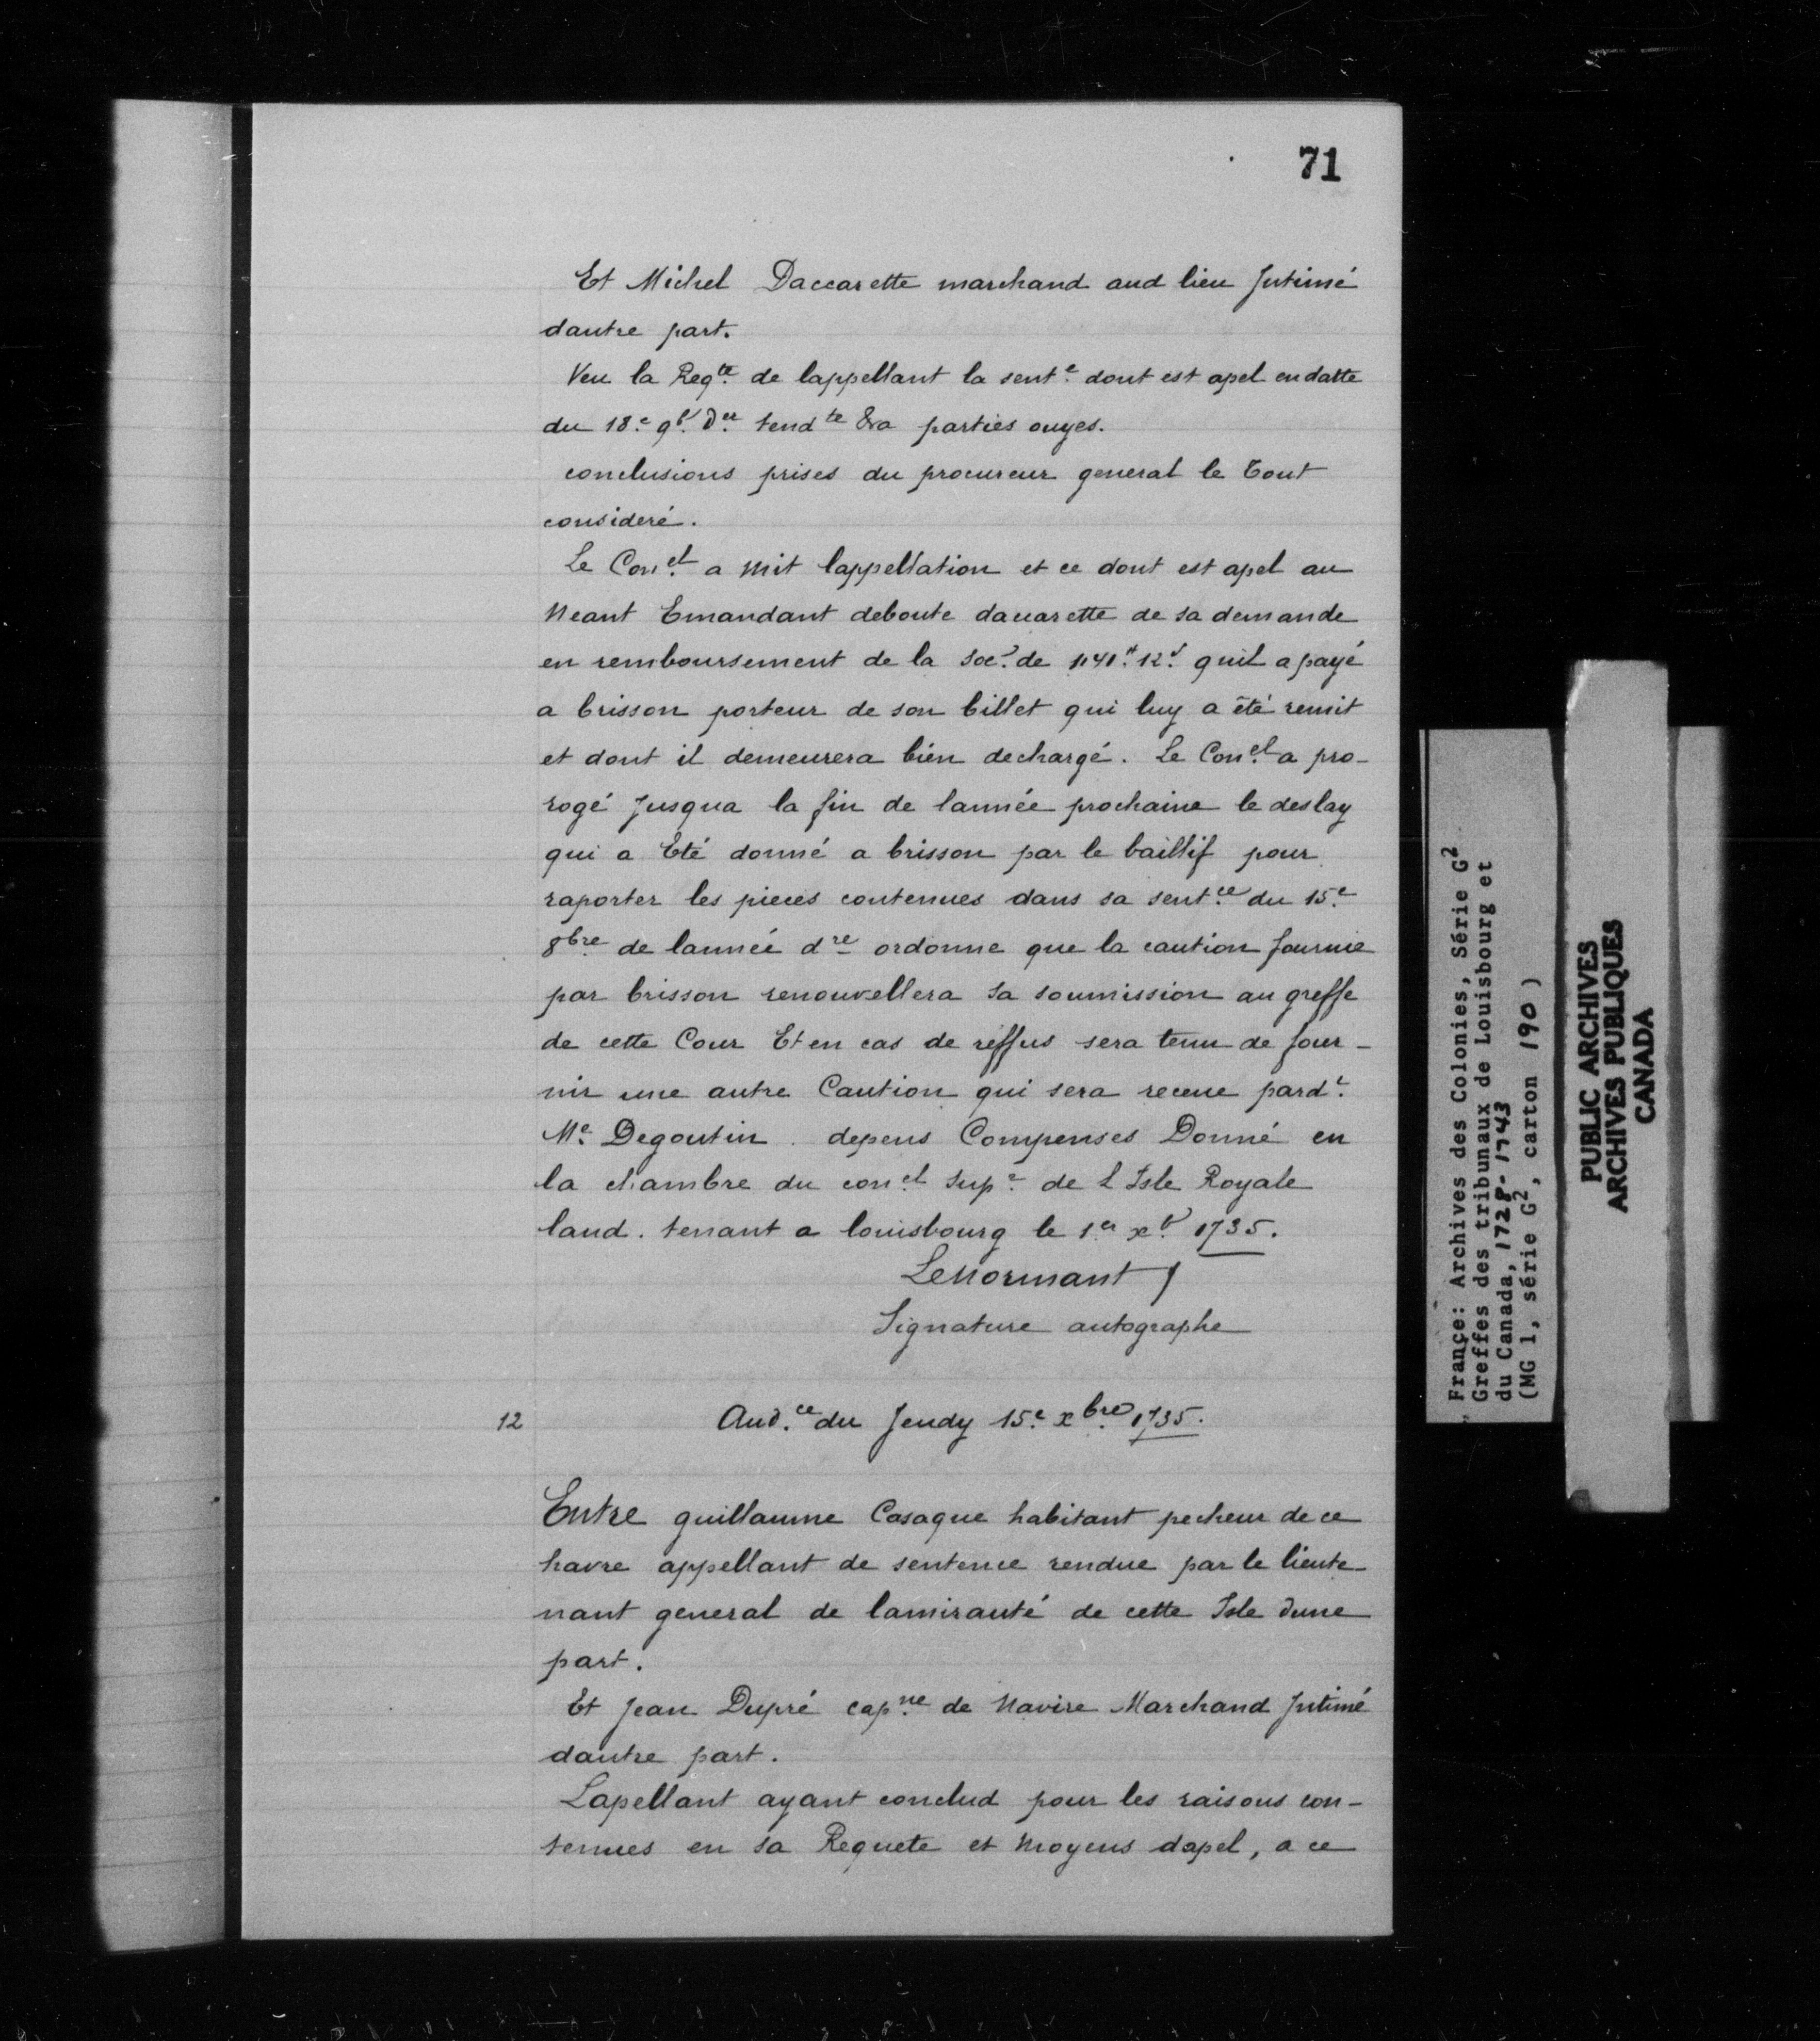 71
Et Michel Daccarette marchand aud lieu Intimé
dautre part.
Veu la Reqte de lappellant la sente dont est apel en datte
du 18e 9b. der tendte &a parties ouyes.
conclusions prises du procureur general le tout
consideré.
Le Conel a mit lappellation et ce dont est apel au
neant Emandant deboute daccarette de sa demande
en remboursement de la de 1141# 12s quil a payé
a brisson porteur de son billet qui luy a été remit
et dont il demeurera bien dechargé. Le Conel a pro-
rogé Jusqua la fin de lannée prochaine le deslay
qui a Eté donné a brisson par le baillif pour
raporter les pieces contenues dans sa sentce du 15e
8bre de lannée dre ordonne que la caution fournie
par brisson renouvellera sa soumission au greffe
de cette Cour Et en cas de reffus sera tenu de four-
nir une autre Caution qui sera receue pardt
Me Degoutin. depens Compensés Donné en
la chambre du conel Supr de L Isle Royale
laud. tenant a louisbourg le 1er xb. 1735.
LeNormant
Signature autographe
12 Audce du Jeudy 15e xbre 1735.
Entre guillaume Casaque habitant pecheur de ce
havre appellant de sentence rendue par le lieute-
nant general de lamirauté de cette Isle dune
part.
Et Jean Dupré capne de Navire Marchand Intimé
dautre part.
Lapellant ayant conclud pour les raisons con-
tenues en sa Requete et moyens dapel, a ce
France: Archives des Colonies, Série G2
Greffes des tribunaux de Louisbourg et
du Canada, 1728-1743
(MG 1, série G2, carton 190)
PUBLIC ARCHIVES
ARCHIVES PUBLIQUES
CANADA